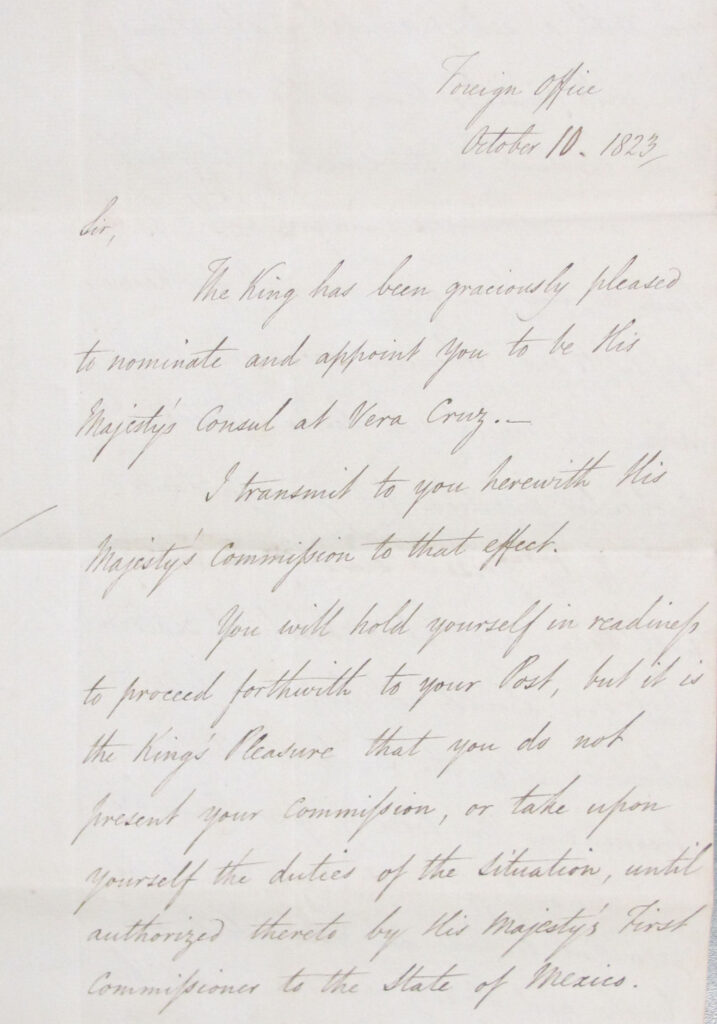 Foreign Office
October 10. 1823
Sir,
The King has been graciously pleased
to nominate and appoint you to be His
Majesty's Consul at Vera Cruz.—
I transmit to you herewith His
Majesty's Commiſsion to that effect.
You will hold yourself in readineſs
to proceed forthwith to your Post, but it is
the King's Pleasure that you do not
present your Commiſsion, or take upon
yourself the duties of the situation, until
authorized thereto by His Majesty's First
Commiſsioner to the State of Mexico.